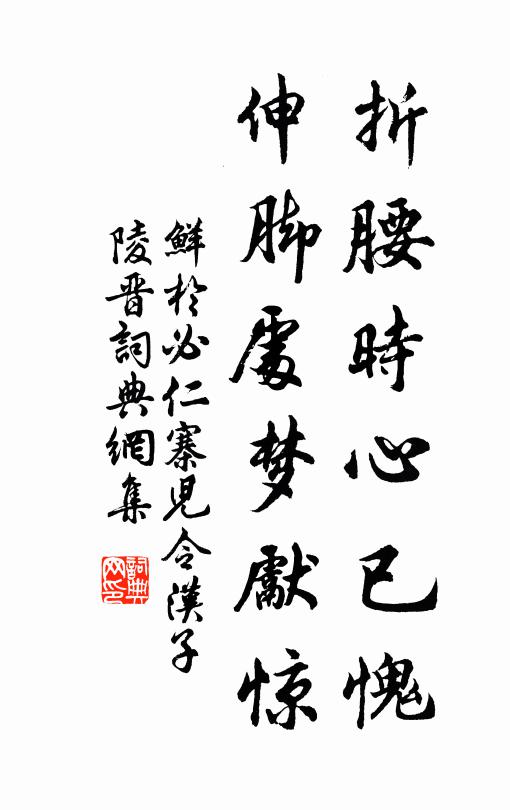 折腰時心已愧
伸脚處梦獻惊
鮮於必仁寨児令漢子
陵晋詞典網集
詞典网印